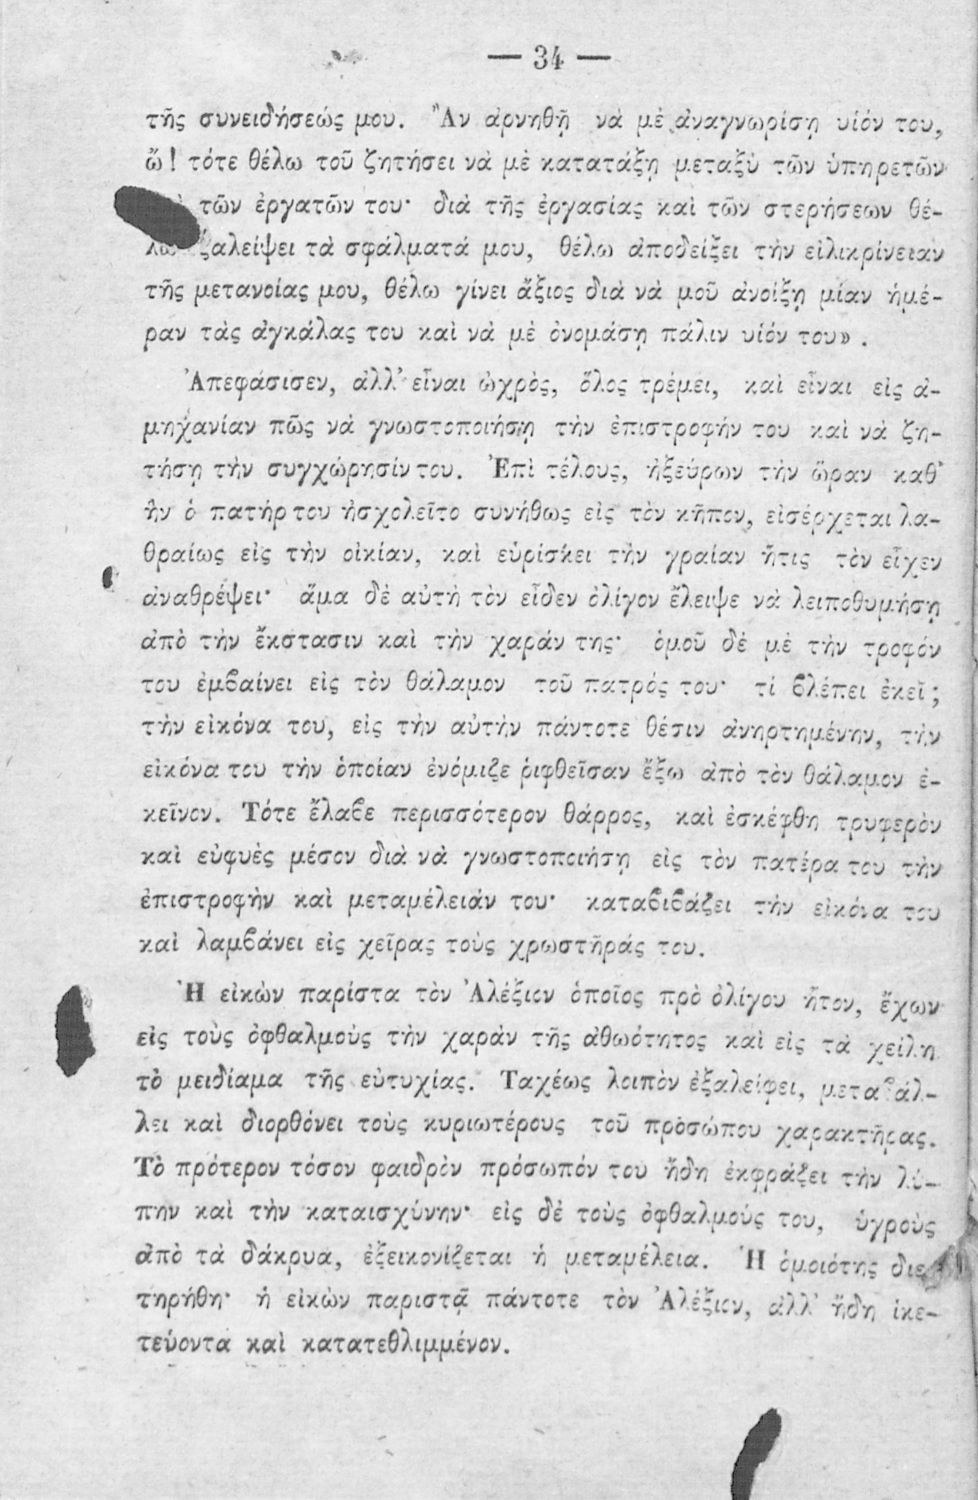 — 34 —
τῆς συνειδήσεώς μου. Ἂν ἀρνηθῇ νὰ μὲ ἀναγνωρίσῃ υἱόν του,
ὤ! τότε θέλω τοῦ ζητήσει νὰ μὲ κατατάξῃ μεταξὺ τῶν ὑπηρετῶν
τῶν ἐργατῶν του· διὰ τῆς ἐργασίας καὶ τῶν στερήσεων θέ-
τὰ σφάλματά μου, θέλω ἀποδείξει τὴν εἰλικρίνειαν
τῆς μετανοίας μου, θέλω γίνει ἄξιος διὰ νὰ μοῦ ἀνοίξῃ μίαν ἡμέ-
ραν τὰς ἀγκάλας του καὶ νὰ μὲ ὀνομάσῃ πάλιν υἱόν του».
Ἀπεφάσισεν, ἀλλ' εἶναι ὠχρὸς, ὅλος τρέμει, καὶ εἶναι εἰς ἀ-
μηχανίαν πῶς νὰ γνωστοποιήσῃ τὴν ἐπιστροφήν του καὶ νὰ ζη-
τήσῃ τὴν συγχώρησίν του. Ἐπὶ τέλους, ἠξεύρων τὴν ὥραν καθ'
ἣν ὁ πατήρ του ἠσχολεῖτο συνήθως εἰς τὸν κῆπον, εἰσέρχεται λα-
θραίως εἰς τὴν οἰκίαν, καὶ εὑρίσκει τὴν γραίαν ἥτις τὸν εἶχεν
ἀναθρέψει· ἅμα δὲ αὐτὴ τὸν εἶδεν ὀλίγον ἔλειψε νὰ λειποθυμήσῃ
ἀπὸ τὴν ἔκστασιν καὶ τὴν χαράν της· ὁμοῦ δὲ μὲ τὴν τροφόν
του ἐμβαίνει εἰς τὸν θάλαμον τοῦ πατρός του· τί βλέπει ἐκεῖ;
τὴν εἰκόνα του, εἰς τὴν αὐτὴν πάντοτε θέσιν ἀνηρτημένην, τὴν
εἰκόνα του τὴν ὁποίαν ἐνόμιζε ῥιφθεῖσαν ἔξω ἀπὸ τὸν θάλαμον ἐ-
κεῖνον. Τότε ἔλαβε περισσότερον θάρρος, καὶ ἐσκέφθη τρυφερὸν
καὶ εὐφυὲς μέσον διὰ νὰ γνωστοποιήσῃ εἰς τὸν πατέρα του τὴν
ἐπιστροφὴν καὶ μεταμέλειάν του· καταβιβάζει τὴν εἰκόνα του
καὶ λαμβάνει εἰς χεῖρας τοὺς χρωστῆράς του.
Ἡ εἰκὼν παρίστα τὸν Ἀλέξιον ὁποῖος πρὸ ὀλίγου ἦτον, ἔχων
εἰς τοὺς ὀφθαλμοὺς τὴν χαρὰν τῆς ἀθωότητος καὶ εἰς τὰ χείλη
τὸ μειδίαμα τῆς εὐτυχίας. Ταχέως λοιπὸν ἐξαλείφει, μεταβάλ-
λει καὶ διορθόνει τοὺς κυριωτέρους τοῦ προσώπου χαρακτῆρας.
Τὸ πρότερον τόσον φαιδρὸν πρόσωπόν του ἤδη ἐκφράζει τὴν λύ-
πην καὶ τὴν καταισχύνην· εἰς δὲ τοὺς ὀφθαλμούς του, ὑγροὺς
ἀπὸ τὰ δάκρυα, ἐξεικονίζεται ἡ μεταμέλεια. Ἡ ὁμοιότης διε-
τηρήθη· ἡ εἰκὼν παριστᾷ πάντοτε τὸν Ἀλέξιον, ἀλλ' ἤδη ἱκε-
τεύοντα καὶ κατατεθλιμμένον.